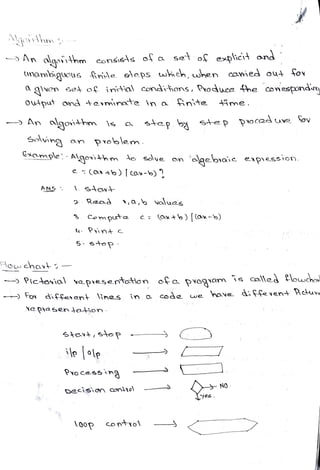 Algorithm :-
→ An algorithm consists of a set of explicit and
unambiguous finite steps which, when carried out for
a given set of initial conditions, Produce the corresponding
output and terminate in a finite time.
→ An algorithm is a step by step procedure for
Solving an problem.
Example:- Algorithm to solve an algebraic expression.
c = (ax+b)/(ax-b)?
Ans : 1. start
2. Read x,a,b values
3. Compute c = (ax+b)/(ax-b)
4. Print c
5. stop.
Flow chart :-
→ Pictorial representation of a program is called flowchart
→ For different lines in a code we have different Picture
representation.
start, stop →
i/p / o/p →
Processing →
Decision control → NO
Yes.
loop control →